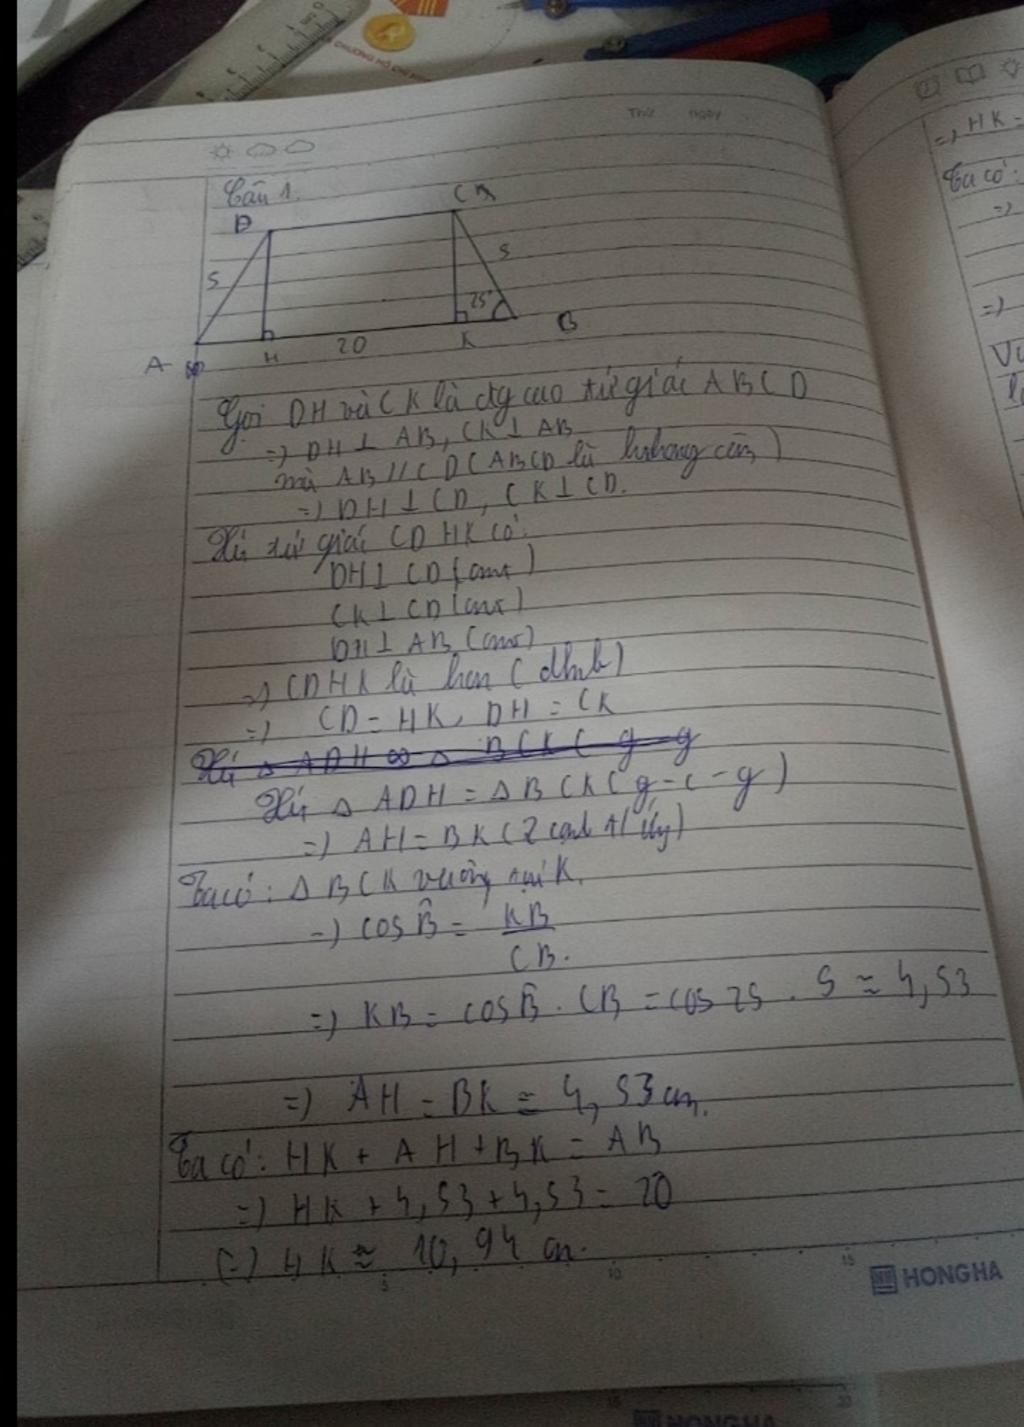 CHƯƠNG
Thứ ngày
Câu 1.
D
C
5
5
25°
A
H
20
K
B
Gọi DH và CK là đg cao tứ giác ABCD
=) DH ⊥ AB, CK ⊥ AB
mà AB // CD (ABCD là hthang cân)
=) DH ⊥ CD, CK ⊥ CD.
Xét tứ giác CDHK có:
DH ⊥ CD (cmt)
CK ⊥ CD (cmt)
DH ⊥ AB (cmt)
=) CDHK là hcn (dhnb)
=) CD = HK, DH = CK
Xét Δ ADH ∞ Δ BCK (g g
Xét Δ ADH = Δ BCK (g-c-g)
=) AH = BK (2 cạnh t/ứ)
Ta có: Δ BCK vuông tại K.
=) cos B̂ = KB
CB.
=) KB = cos B̂ . CB = cos 25 . 5 ≈ 4,53
=) AH = BK ≈ 4,53 cm.
Ta có: HK + AH + BK = AB
=) HK + 4,53 + 4,53 = 20
(=) HK ≈ 10,94 cm.
5 10 15
HONG HA
=) HK =
Ta có:
=)
=)
HONG HA
20